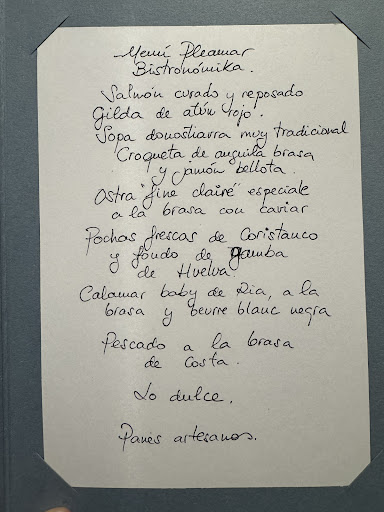 Menú Pleamar
Bistronómika.
Salmón curado y reposado
Gilda de atún rojo.
Sopa donostiarra muy tradicional
Croqueta de anguila brasa
y jamón bellota.
Ostra "fine claire" especiale
a la brasa con caviar
Pochas frescas de Coristanco
y fondo de gamba
de Huelva.
Calamar baby de Ría, a la
brasa y beurre blanc negra
Pescado a la brasa
de Costa.
Lo dulce.
Panes artesanos.